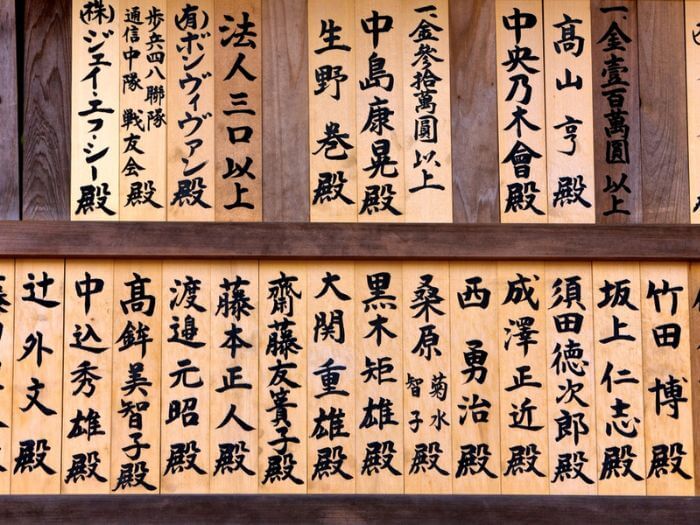 一、金壹百萬圓以上
高山亨殿
中央乃木會殿
一、金參拾萬圓以上
中島康晃殿
生野巻殿
法人三口以上
(有)ボンヴィヴァン殿
歩兵四八聯隊
通信中隊 戦友会殿
(株)ジェイ・エフ・シー殿
竹田博殿
坂上仁志殿
須田徳次郎殿
成澤正近殿
西勇治殿
桑原 菊水 智子殿
黒木矩雄殿
大関重雄殿
齋藤友賽子殿
藤本正人殿
渡邉元昭殿
高鉾美智子殿
中込秀雄殿
辻外文殿